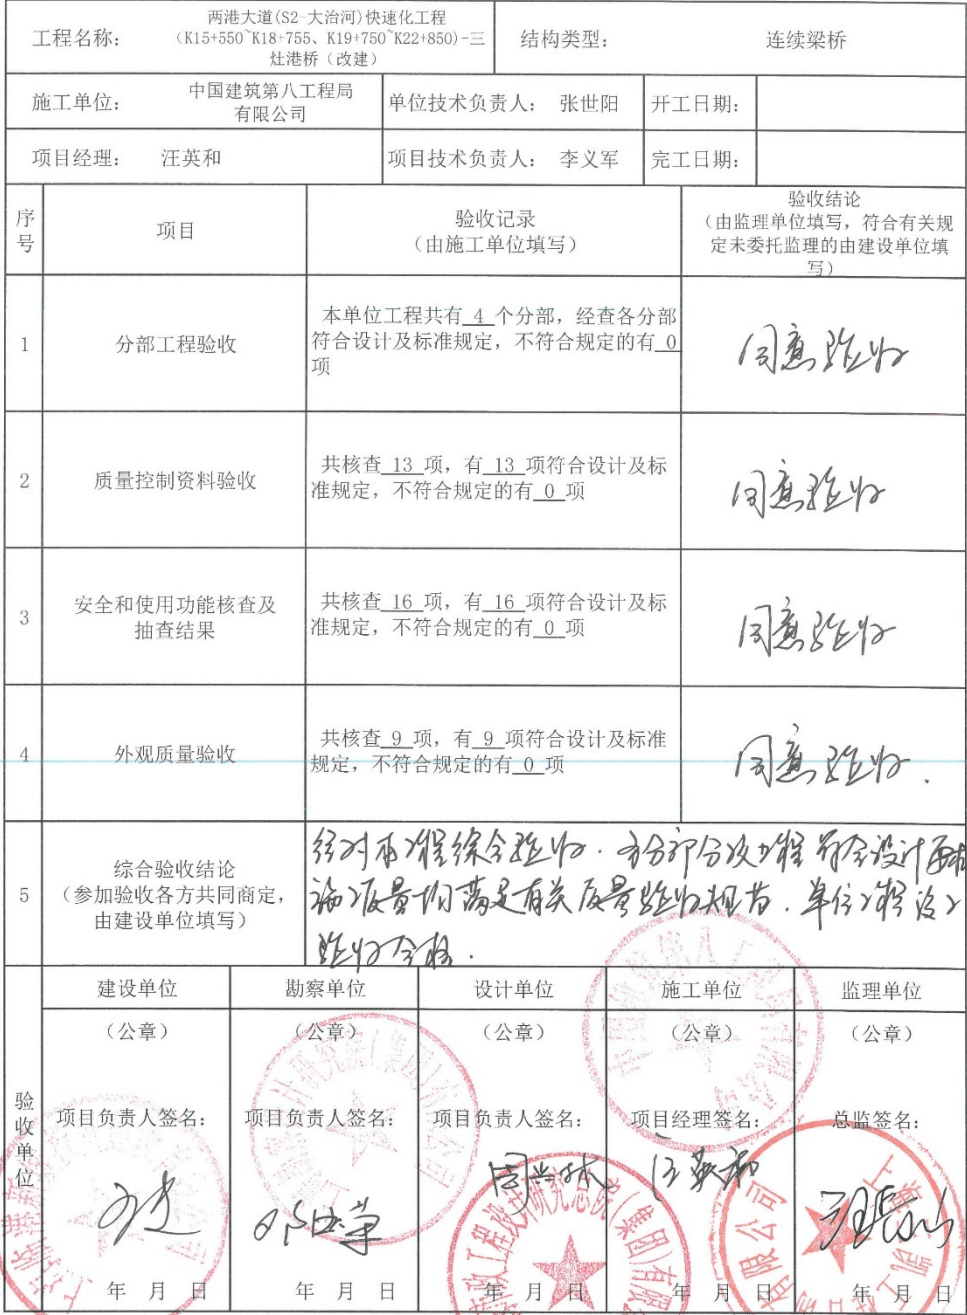 工程名称：
两港大道(S2-大治河)快速化工程
（K15+550~K18+755、K19+750~K22+850)-三
灶港桥（改建）
结构类型：
连续梁桥
施工单位：
中国建筑第八工程局
有限公司
单位技术负责人：
张世阳
开工日期：
项目经理：
汪英和
项目技术负责人：
李义军
完工日期：
序
号
项目
验收记录
（由施工单位填写）
验收结论
（由监理单位填写，符合有关规
定未委托监理的由建设单位填
写）
1
分部工程验收
本单位工程共有 4 个分部，经查各分部
符合设计及标准规定，不符合规定的有 0
项
同意验收
2
质量控制资料验收
共核查 13 项，有 13 项符合设计及标
准规定，不符合规定的有 0 项
同意验收
3
安全和使用功能核查及
抽查结果
共核查 16 项，有 16 项符合设计及标
准规定，不符合规定的有 0 项
同意验收
4
外观质量验收
共核查 9 项，有 9 项符合设计及标准
规定，不符合规定的有 0 项
同意验收.
5
综合验收结论
（参加验收各方共同商定，
由建设单位填写）
经对本工程综合验收.各分部分项工程符合设计要求
施工质量均满足有关质量验收规范.单位工程
验收合格.
验
收
单
位
建设单位
勘察单位
设计单位
施工单位
监理单位
（公章）
（公章）
（公章）
（公章）
（公章）
项目负责人签名：
项目负责人签名：
项目负责人签名：
项目经理签名：
总监签名：
汪英和
年 月 日
年 月 日
年 月 日
年 月 日
年 月 日